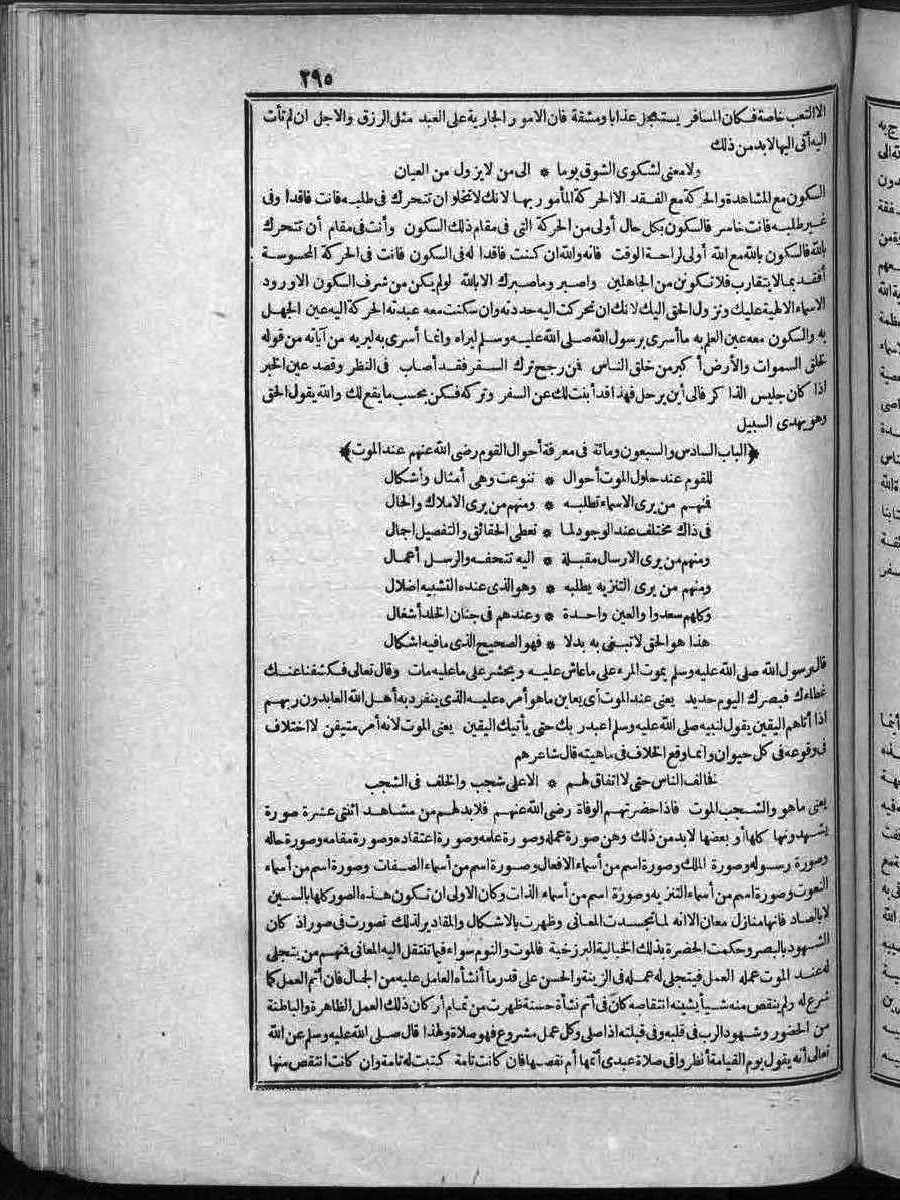 ٢٩٥
الا التعب خاصة فكان المسافر يستعجل عذابا ومشقة فان الامور الجارية على العبد مثل الرزق والاجل ان لم تأت
اليه أتى اليها لابد من ذلك
ولا معنى لشكوى الشوق يوما * الى من لا يزول من العيان
السكون مع المشاهدة والحركة مع الفقد الا الحركة المأمور بها لانك لا تخلو ان تتحرك فى طلبه فانت فاقد أو فى
غير طلبه فانت خاسر فالسكون بكل حال أولى من الحركة التى فى مقام ذلك السكون وأنت فى مقام أن تتحرك
بالله فالسكون بالله مع الله أولى لراحة الوقت فانه والله ان كنت فاقدا له فى السكون فانت فى الحركة المحسوسة
أفقد بما لا يتقارب فلا تكونن من الجاهلين واصبر وما صبرك الا بالله لو لم يكن من شرف السكون الا ورود
الاسماء الالهية عليك ونزول الحق اليك لانك ان تحركت اليه حددته وان سكنت معه عبدته الحركة اليه عين الجهل
به والسكون معه عين العلم به ما أسرى برسول الله صلى الله عليه وسلم ليراه وانما أسرى به ليريه من آياته من قوله
لخلق السموات والأرض أكبر من خلق الناس فمن رجح ترك السفر فقد أصاب فى النظر وقصد عين الخبر
اذا كان جليس الذاكر فالى أين يرحل فهذا قد أبنت لك عن السفر وتركه فكن بحسب ما يقع لك والله يقول الحق
وهو يهدى السبيل
﴿الباب السادس والسبعون ومائة فى معرفة أحوال القوم رضى الله عنهم عند الموت﴾
للقوم عند حلول الموت أحوال * تنوعت وهى أمثال وأشكال
فمنهم من يرى الاسماء تطلبه * ومنهم من يرى الاملاك والحال
فى ذاك مختلف عند الوجود لما * تعطى الحقائق والتفصيل اجمال
ومنهم من يرى الارسال مقبلة * اليه تتحفه والرسل أعمال
ومنهم من يرى التنزيه يطلبه * وهو الذى عنده التشبيه اضلال
وكلهم سعدوا والعين واحدة * وعندهم فى جنان الخلد أشغال
هذا هو الحق لا تبغى به بدلا * فهو الصحيح الذى ما فيه اشكال
قال رسول الله صلى الله عليه وسلم يموت المرء على ما عاش عليه ويحشر على ما عليه مات وقال تعالى فكشفنا عنك
غطاءك فبصرك اليوم حديد يعنى عند الموت أى يعاين ما هو أمره عليه الذى ينفرد به أهل الله العابدون ربهم
اذا أتاهم اليقين يقول لنبيه صلى الله عليه وسلم اعبد ربك حتى يأتيك اليقين يعنى الموت لانه أمر متيقن لا اختلاف
فى وقوعه فى كل حيوان وانما وقع الخلاف فى ماهيته قال شاعرهم
تخالف الناس حتى لا اتفاق لهم * الا على شجب والخلف فى الشجب
يعنى ما هو والشجب الموت فاذا حضرتهم الوفاة رضى الله عنهم فلا بد لهم من مشاهد اثنتى عشرة صورة
يشهدونها كلها أو بعضها لابد من ذلك وهن صورة عمله وصورة علمه وصورة اعتقاده وصورة مقامه وصورة حاله
وصورة رسوله وصورة الملك وصورة اسم من أسماء الافعال وصورة اسم من أسماء الصفات وصورة اسم من أسماء
النعوت وصورة اسم من أسماء التنزيه وصورة اسم من أسماء الذات وكان الاولى ان تكون هذه الصور كلها بالسين
لا بالصاد فانها منازل معان الا انه لما تجسدت المعانى وظهرت بالاشكال والمقادير لذلك تصورت فى صور اذ كان
الشهود بالبصر وحكمت الحضرة بذلك الخيالية البرزخية فالموت والنوم سواء فيما تنتقل اليه المعانى فمنهم من يتجلى
له عند الموت عمله العمل فيتجلى له عمله فى الزينة والحسن على قدر ما أنشأه العامل عليه من الجمال فان أتم العمل كما
شرع له ولم ينقص منه شيأ يشينه انتقاصه كان فى أتم نشأة حسنة ظهرت من تمام أركان ذلك العمل الظاهرة والباطنة
من الحضور وشهود الرب فى قلبه وفى قبلته اذا صلى وكل عمل مشروع فهو صلاة ولهذا قال صلى الله عليه وسلم عن الله
تعالى أنه يقول يوم القيامة أنظروا فى صلاة عبدى أتمها أم نقصها فان كانت تامة كتبت له تامة وان كانت انتقص منها